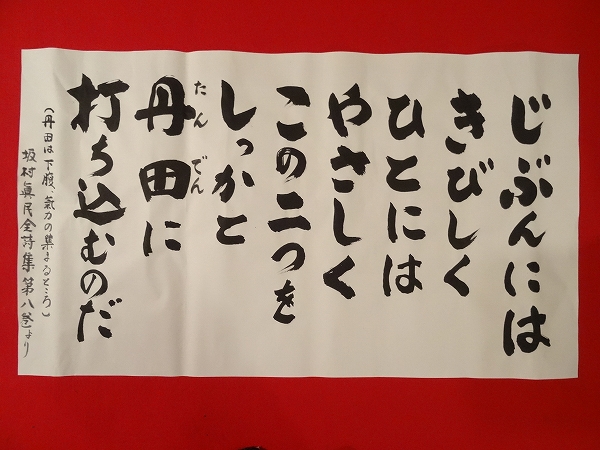 じぶんには
きびしく
ひとには
やさしく
この二つを
しっかと
丹田に
たんでん
打ち込むのだ
(丹田は下腹、氣力の集まるところ)
坂村眞民全詩集第八巻より